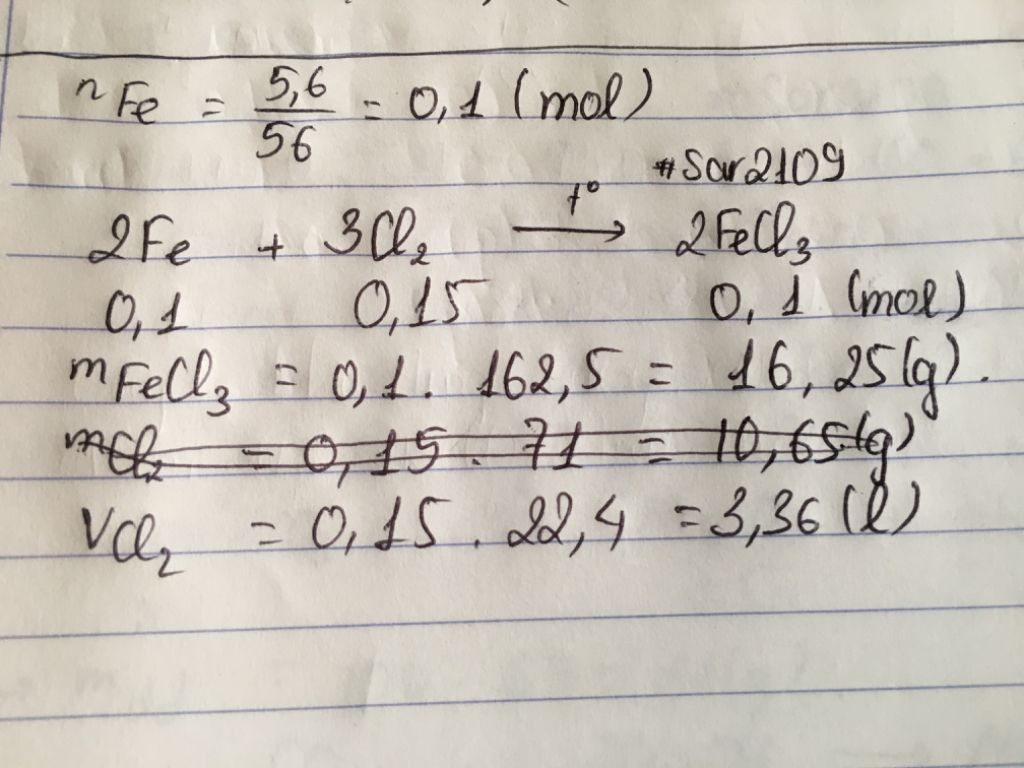 nFe = 5,6/56 = 0,1 (mol)
#Sar2109
2Fe + 3Cl₂ t°→ 2FeCl₃
0,1 0,15 0,1 (mol)
mFeCl₃ = 0,1. 162,5 = 16,25(g).
mCl₂ = 0,15. 71 = 10,65(g)
VCl₂ = 0,15. 22,4 = 3,36 (l)